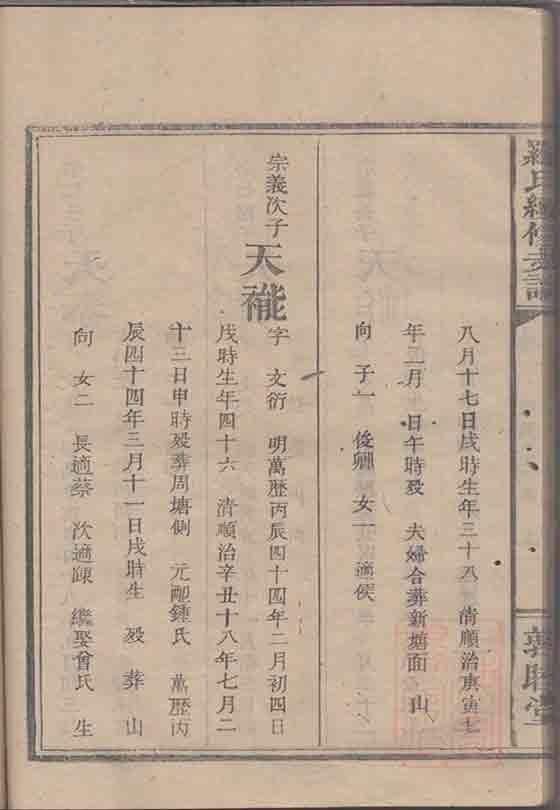 羅氏續修支譜
八月十七日戌時生年三十八　清順治庚寅七
年二月　日午時歿　夫婦合葬新塘面　山
向　子一　俊卿　女一　適侯
宗義次子
天
字　文衍　明萬歷丙辰四十四年二月初四日
戌時生年四十六　清順治辛丑十八年七月二
十三日申時歿葬周塘側　元配鍾氏　萬歷丙
辰四十四年三月十一日戌時生　歿　葬　山
向　女二　長適蔡　次適踈　繼娶曾氏　生